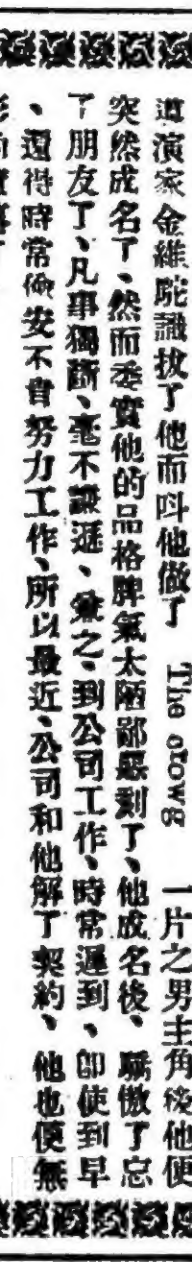 導演家金維駝識拔了他而叫他做了 The crowg 一片之男主角後他便
突然成名了、然而委實他的品格脾氣太陋鄙惡劣了、他成名後、驕傲了忘
了朋友了、凡事獨斷、毫不謙遜、兼之、到公司工作、時常遲到、卽使到早
、還得時常偸安不肯努力工作、所以最近、公司和他解了契約、他也便無